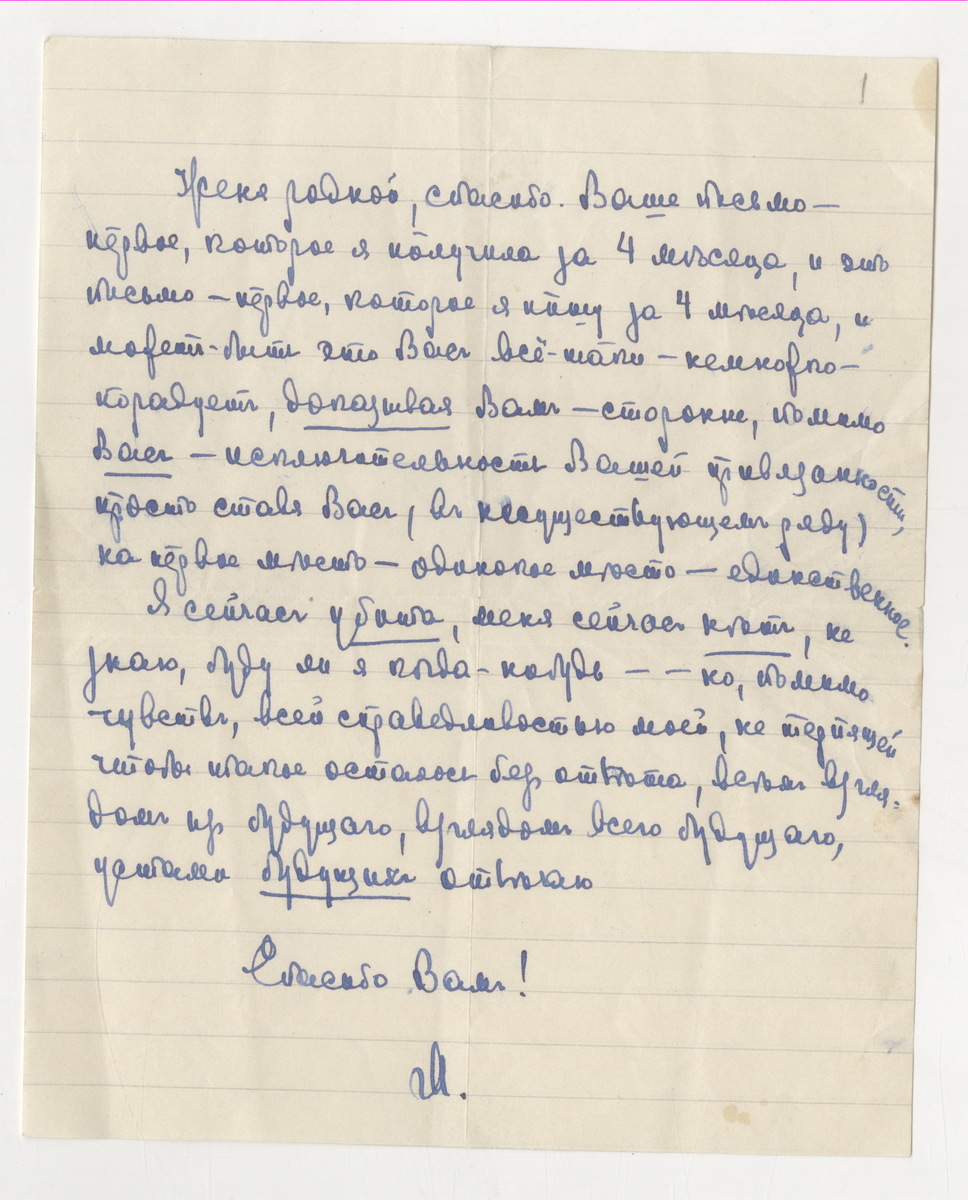 1
Женя родной, спасибо. Ваше письмо —
первое, которое я получила за 4 мѣсяца, и это
письмо — первое, которое я пишу за 4 мѣсяца, и
может-быть это Васъ всё-таки — немножко —
порадуетъ, доказывая Вамъ — стороннѣ, помимо
Васъ — исключительность Вашей привязанности,
просто ставя Васъ (въ несуществующемъ ряду)
на первое мѣсто — одинокое мѣсто — единственное.
Я сейчасъ убита, меня сейчасъ нѣтъ, не
знаю, буду ли я когда-нибудь — — но, помимо
чувствъ, всей справедливостью моей, не терпящей
чтобы такое осталось без отвѣта, всѣмъ взгля-
домъ из будущаго, взглядомъ всего будущаго,
устами будущихъ отвѣчаю
Спасибо Вамъ!
М.